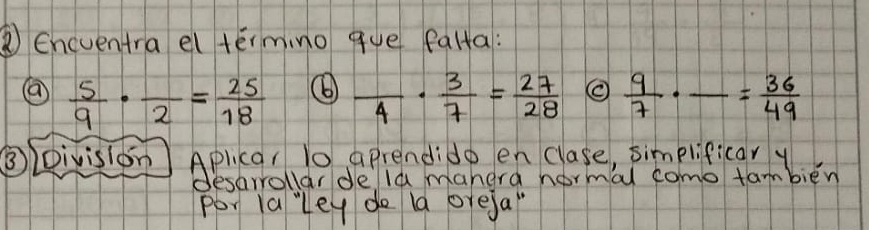 ② Encuentra el término que falta:
ⓐ 5/9 · __/2 = 25/18 ⓑ __/4 · 3/7 = 27/28 ⓒ 9/7 · __ = 36/49
③ División Aplicar lo aprendido en clase, simplificar y
desarrollar de la manera normal como también
por la "Ley de la oreja"